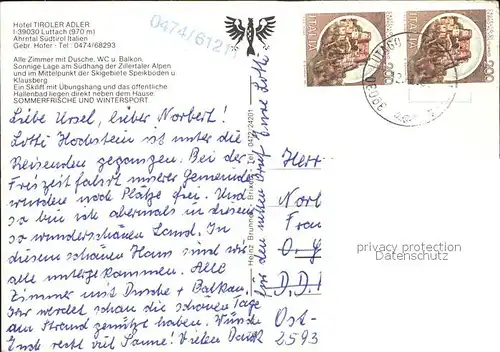 Hotel TIROLER ADLER
I-39030 Luttach (970 m)
Ahrntal Südtirol Italien
Gebr. Hofer · Tel: 0474/68293
0474/61211
Alle Zimmer mit Dusche, WC u. Balkon.
Sonnige Lage am Südhang der Zillertaler Alpen
und im Mittelpunkt der Skigebiete Speikboden u.
Klausberg
Ein Skilift mit Übungshang und das öffentliche
Hallenbad liegen direkt neben dem Hause.
SOMMERFRISCHE UND WINTERSPORT
Liebe Ursel, lieber Norbert!
Lotti Hochstein ist unter die
Reisenden gegangen. Bei der
Freizeitfahrt unserer Gemeinde
wurden noch Plätze frei. Und
so bin ich abermals in diesem
so wunderschönen Land. In
diesem schönen Haus sind wir
alle untergekommen. Alle
Zimmer mit Dusche + Balkon.
Ihr werdet schon die schönen Tage
am Strand genützt haben. Wünsche
Euch recht viel Sonne! Vielen Dank
für den netten Brief Eure Lotti
Heinz Brunner, Brixen - Tel. 0472/24201
ITALIA
ITALIA
39030 LUTAGO
Herr
Frau
O. G
D.D.
Ost-
2593
privacy protection
Datenschutz